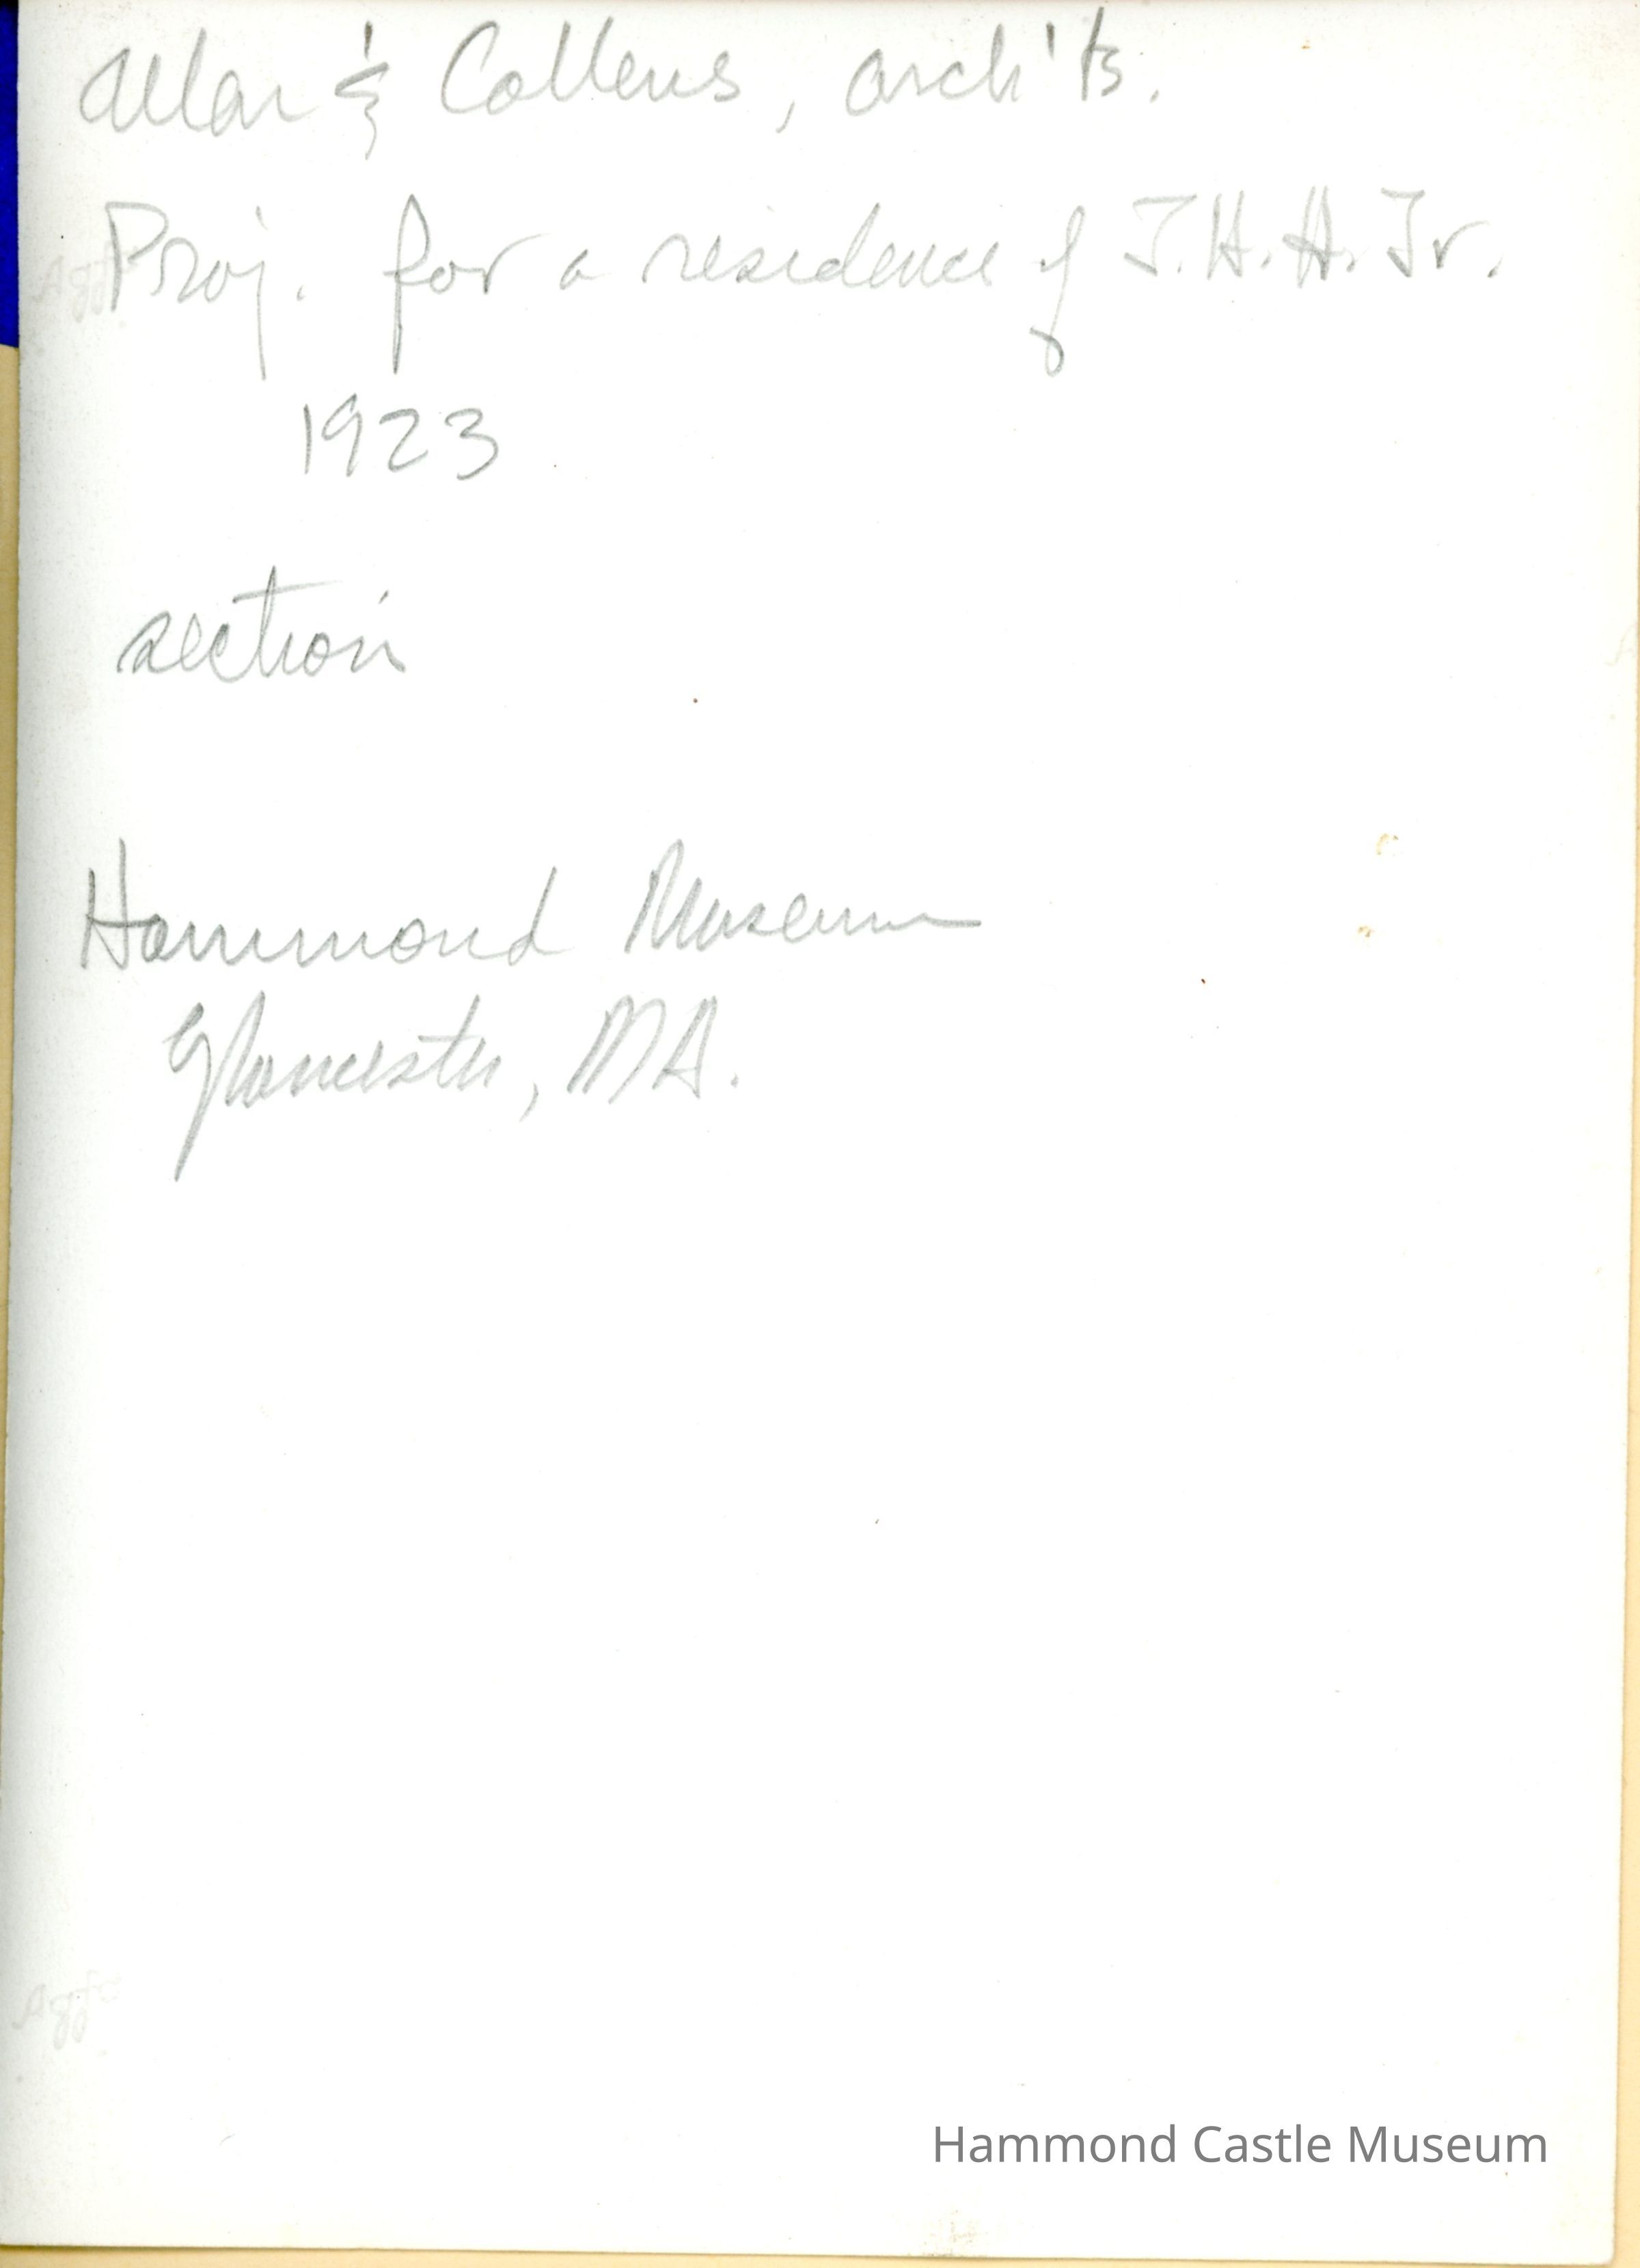 Allan & Collens, arch'ts.
Proj. for a residence of J.H.H. Jr.
1923
section
Hammond Museum
Gloucester, MA.
Agfa
Hammond Castle Museum